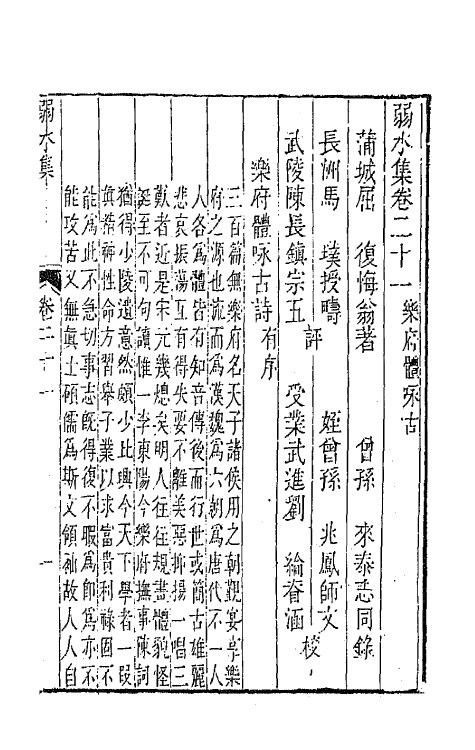 弱水集卷二十一 樂府體詠古
蒲城屈 復悔翁著 曾孫 來泰悉同錄
長洲馬 璞授疇 評 姪曾孫 兆鳳師文 校
武陵陳長鎮宗五 受業武進劉 綸眘涵
樂府體咏古詩有序
三百篇無樂府名天子諸侯用之朝覲宴享樂
府之源也流而爲漢魏爲六朝爲唐代不一人
人各爲體皆有知音傳後而行世或簡古雄麗
悲哀振蕩互有得失要不離美惡抑揚一唱三
歎者近是宋元幾熄矣明人往往規畫體貌怪
誕至不可句讀惟一李東陽今樂府撫事陳詞
猶得少陵遺意然頗少比興今天下學者一段
眞精神性命方習舉子業以求富貴利祿固不
能爲此不急切事志旣得復不暇爲卽爲亦不
能攻苦又無眞士碩儒爲斯文領袖故人人自
弱水集 卷二十一 一